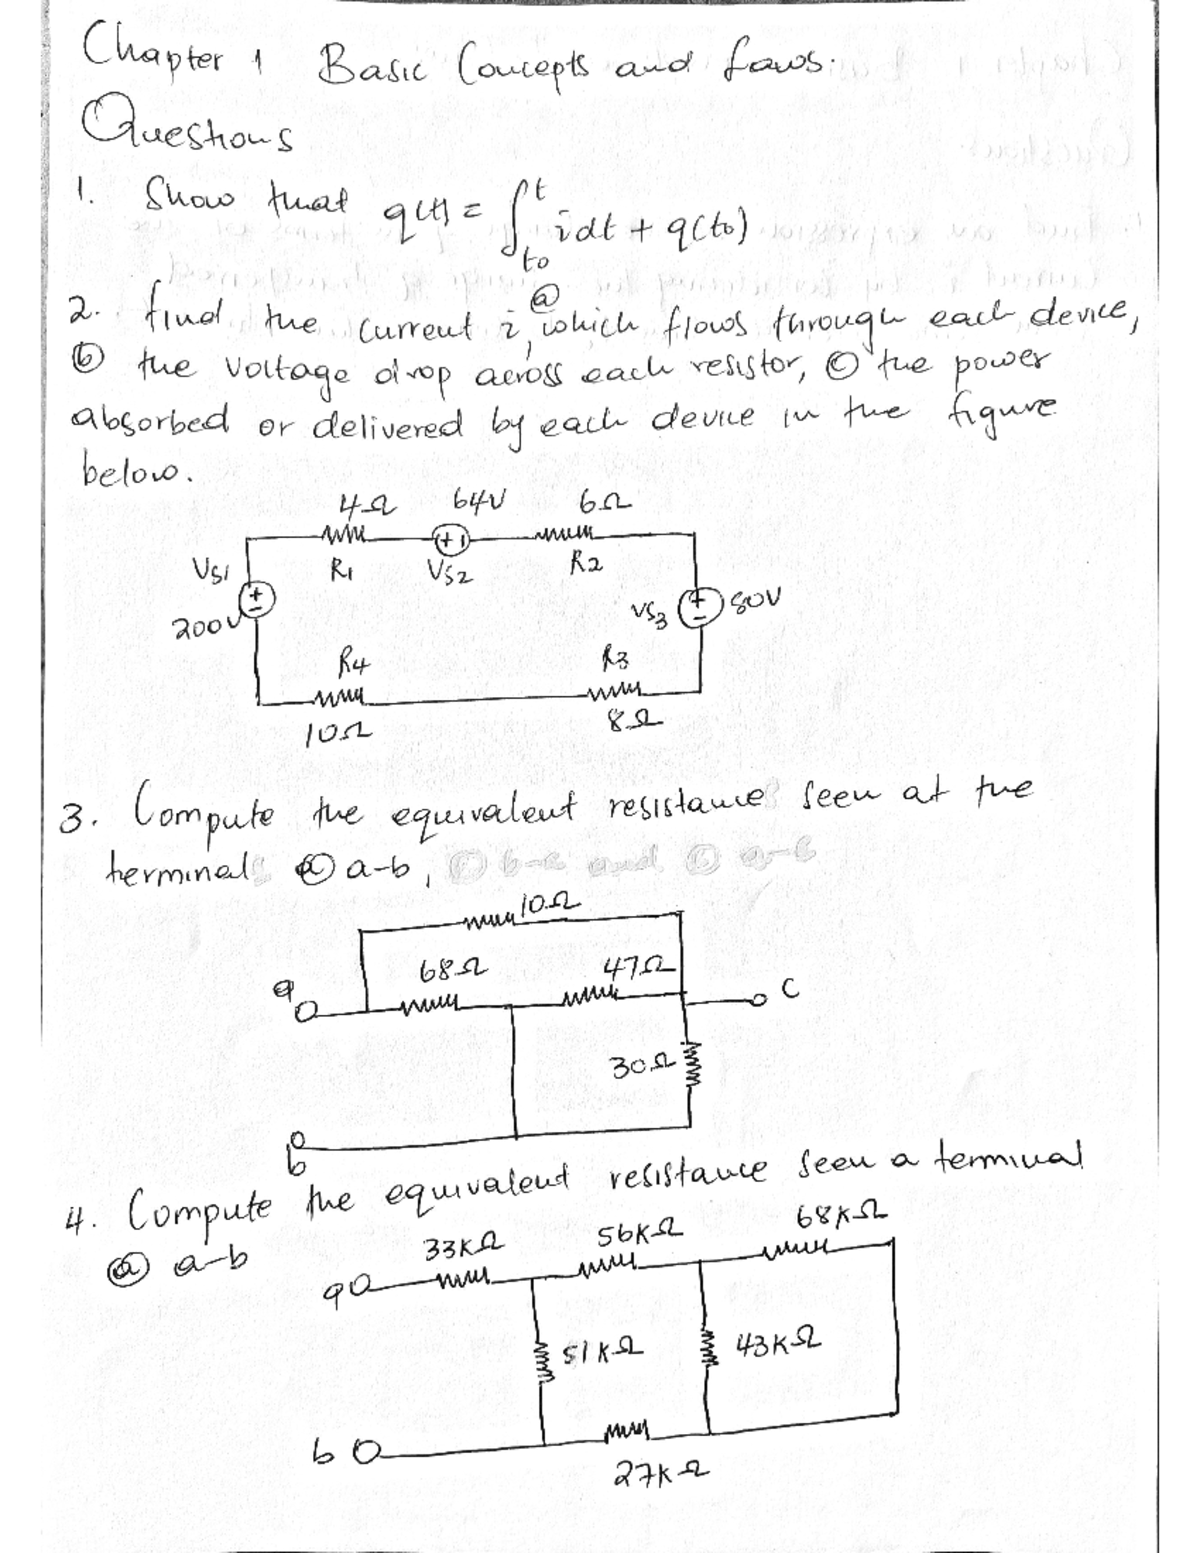 Chapter 1 Basic Concepts and Laws.
Questions
1. Show that q(t) = ∫_{t0}^{t} i dt + q(t0)
2. find the current i, ⓐ which flows through each device,
ⓑ the voltage drop across each resistor, ⓒ the power
absorbed or delivered by each device in the figure
below.
4Ω 64V 6Ω
R1 VS2 R2
VS1
200V
VS3 80V
R4 R3
10Ω 8Ω
3. Compute the equivalent resistance seen at the
terminals ⓐ a-b, ⓑ b-c and ⓒ a-c
10Ω
68Ω 47Ω
a
c
30Ω
b
4. Compute the equivalent resistance seen a terminal
ⓐ a-b
33KΩ 56KΩ 68KΩ
a
51KΩ 43KΩ
b
27KΩ